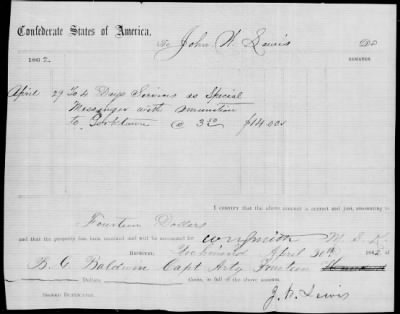 Confederate States of America,
To John W. Lewis Dr.
1862. REMARKS.
April 29 To 4 Days Services as Special
Messenger with amunition
to Yorktown @ 3 50 $14.00
I CERTIFY that the above account is correct and just, amounting to
Fourteen Dollars
and that the property has been received and will be accounted for
RECEIVED, Richmond April 30th 1862, of
B. G. Baldwin Capt Arty Fourteen
Dollars, cents, in full of the above account.
SIGNED DUPLICATES. J. W. Lewis